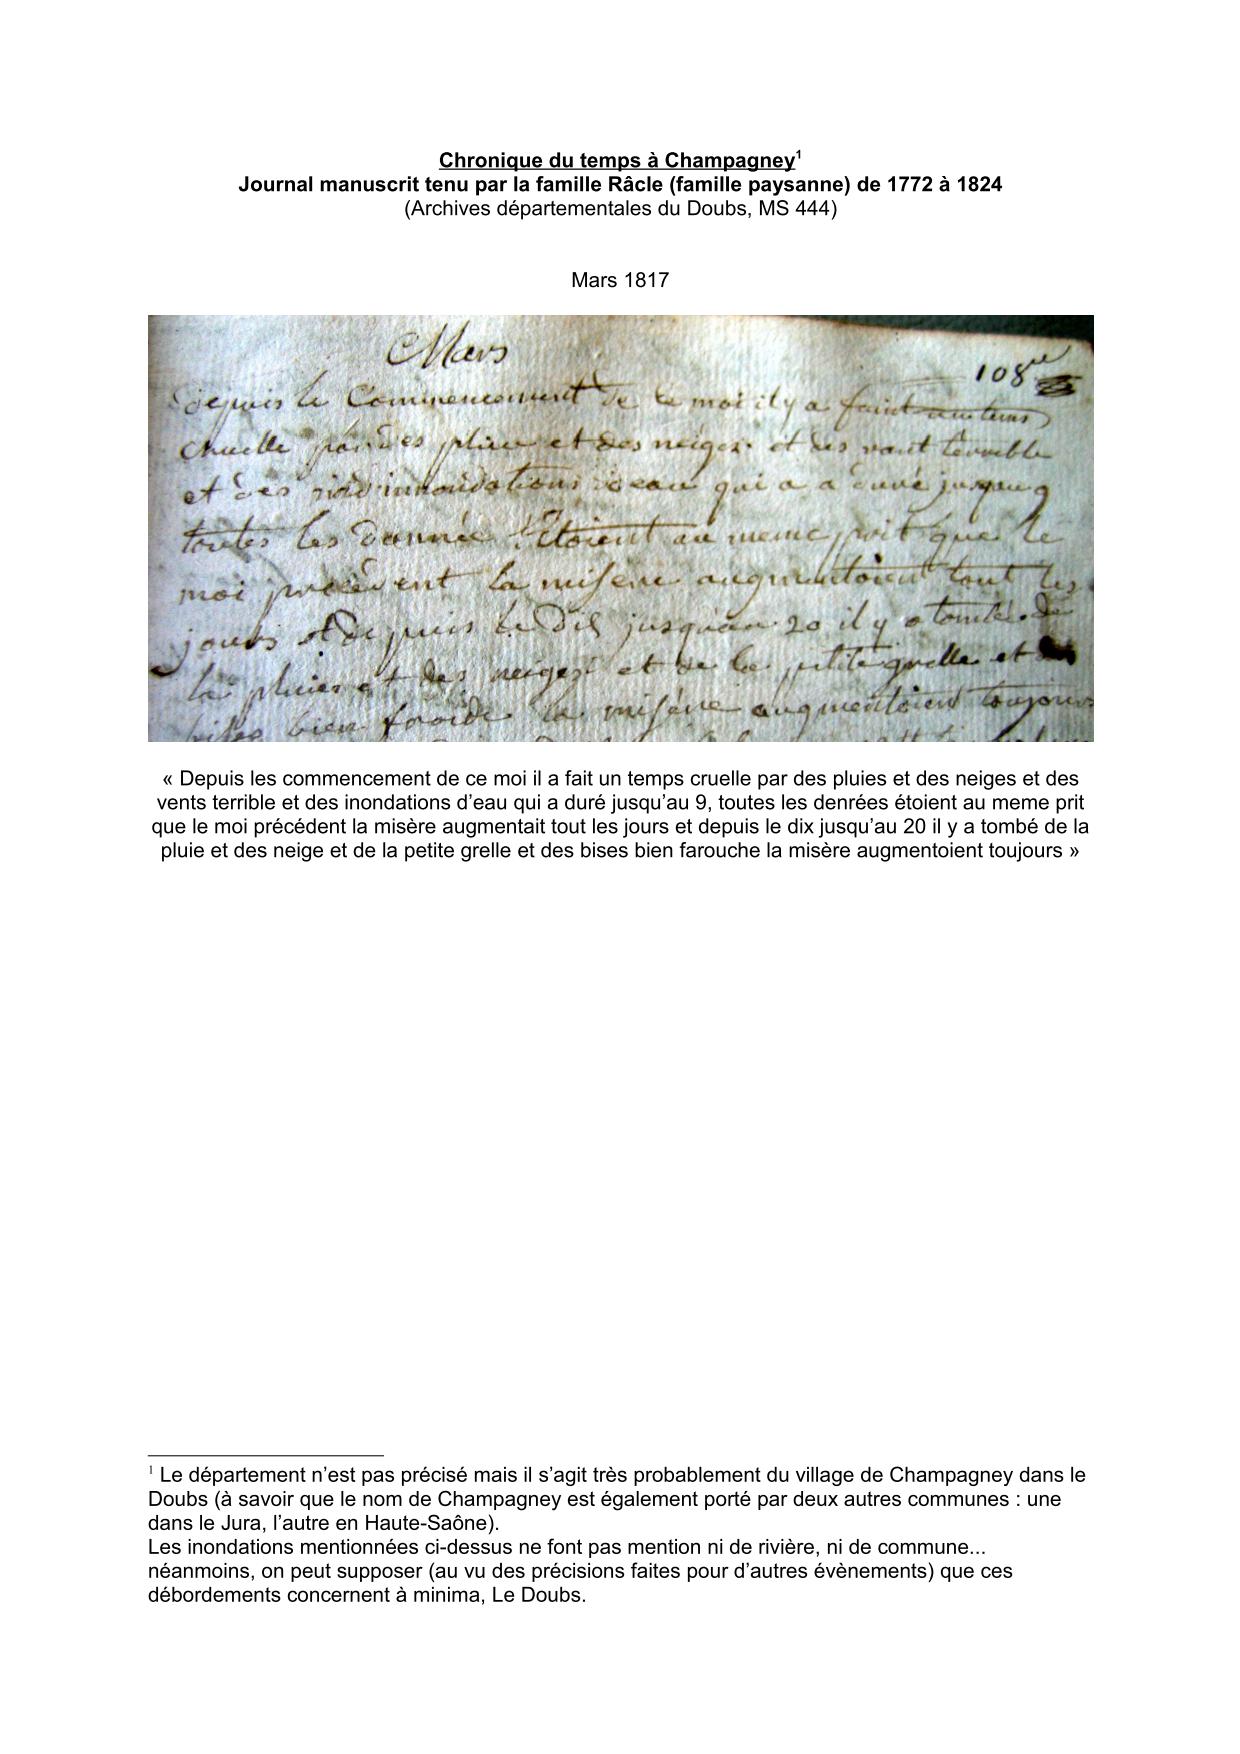 Chronique du temps à Champagney1
Journal manuscrit tenu par la famille Râcle (famille paysanne) de 1772 à 1824
(Archives départementales du Doubs, MS 444)
Mars 1817
Mars
108
depuis le Commencement de ce moi il y a fait un tems
cruelle par des pluie et des neiges et des vant terrible
et des innondations deau qui a duré jusquau 9
toutes les étoient au meme prit que le
moi précédent la misere augmentoient tout les
jours et depuis le dix jusquau 20 il y a tombé de
la pluies et des neiges et de la petite grelle et des
bises bien froide la misére augmentoient toujours
« Depuis les commencement de ce moi il a fait un temps cruelle par des pluies et des neiges et des
vents terrible et des inondations d’eau qui a duré jusqu’au 9, toutes les denrées étoient au meme prit
que le moi précédent la misère augmentait tout les jours et depuis le dix jusqu’au 20 il y a tombé de la
pluie et des neige et de la petite grelle et des bises bien farouche la misère augmentoient toujours »
1 Le département n’est pas précisé mais il s’agit très probablement du village de Champagney dans le
Doubs (à savoir que le nom de Champagney est également porté par deux autres communes : une
dans le Jura, l’autre en Haute-Saône).
Les inondations mentionnées ci-dessus ne font pas mention ni de rivière, ni de commune...
néanmoins, on peut supposer (au vu des précisions faites pour d’autres évènements) que ces
débordements concernent à minima, Le Doubs.